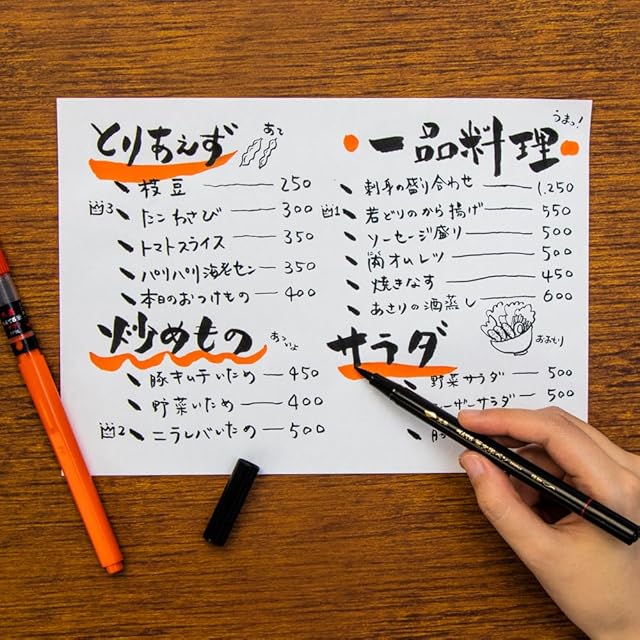 とりあえず
あて
枝豆 250
3 たこわさび 300
トマトスライス 350
パリパリ海老セン 350
本日のおつけもの 400
炒めもの
あつぃよ
豚キムチいため 450
野菜いため 400
2 ニラレバいため 500
うまっ!
一品料理
刺身の盛り合わせ 1,250
1 若どりのから揚げ 550
ソーセージ盛り 500
オムレツ 500
焼きなす 450
あさりの酒蒸し 600
サラダ
おおもり
野菜サラダ 500
ーザーサラダ 500